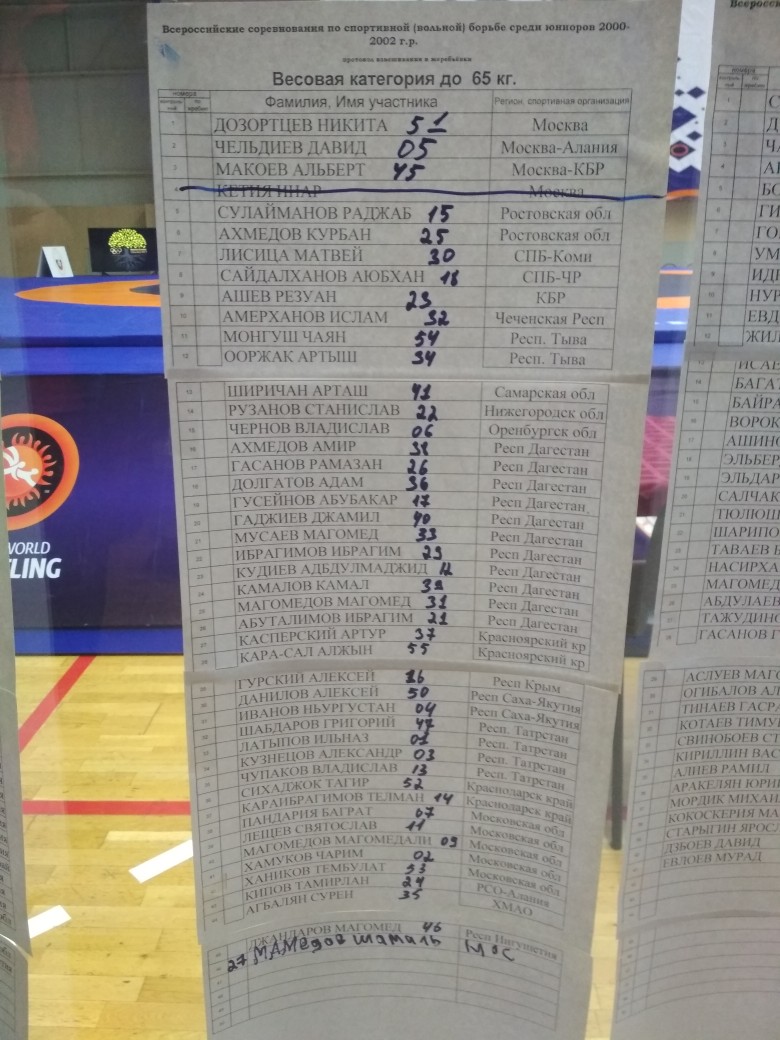 Всероссийские соревнования по спортивной (вольной) борьбе среди юниоров 2000-
2002 г.р.
протокол взвешивания и жеребьёвки
Весовая категория до 65 кг.
номера Фамилия, Имя участника Регион, спортивная организация
1 ДОЗОРТЦЕВ НИКИТА 51 Москва
2 ЧЕЛЬДИЕВ ДАВИД 05 Москва-Алания
3 МАКОЕВ АЛЬБЕРТ 45 Москва-КБР
4 Москва
5 СУЛАЙМАНОВ РАДЖАБ 15 Ростовская обл
6 АХМЕДОВ КУРБАН 25 Ростовская обл
7 ЛИСИЦА МАТВЕЙ 30 СПБ-Коми
8 САЙДАЛХАНОВ АЮБХАН 18 СПБ-ЧР
9 АШЕВ РЕЗУАН 23 КБР
10 АМЕРХАНОВ ИСЛАМ 32 Чеченская Респ
11 МОНГУШ ЧАЯН 54 Респ. Тыва
12 ООРЖАК АРТЫШ 34 Респ. Тыва
13 ШИРИЧАН АРТАШ 41 Самарская обл
14 РУЗАНОВ СТАНИСЛАВ 22 Нижегородск обл
15 ЧЕРНОВ ВЛАДИСЛАВ 06 Оренбургск обл
16 АХМЕДОВ АМИР Респ Дагестан
17 ГАСАНОВ РАМАЗАН 26 Респ Дагестан
18 ДОЛГАТОВ АДАМ 36 Респ Дагестан
19 ГУСЕЙНОВ АБУБАКАР 17 Респ Дагестан
20 ГАДЖИЕВ ДЖАМИЛ 40 Респ Дагестан
21 МУСАЕВ МАГОМЕД 33 Респ Дагестан
22 ИБРАГИМОВ ИБРАГИМ 29 Респ Дагестан
23 КУДИЕВ АДБДУЛМАДЖИД 12 Респ Дагестан
24 КАМАЛОВ КАМАЛ Респ Дагестан
25 МАГОМЕДОВ МАГОМЕД 31 Респ Дагестан
26 АБУТАЛИМОВ ИБРАГИМ 21 Респ Дагестан
27 КАСПЕРСКИЙ АРТУР 37 Красноярский кр
28 КАРА-САЛ АЛЖЫН 55 Красноярский кр
ГУРСКИЙ АЛЕКСЕЙ 16 Респ Крым
ДАНИЛОВ АЛЕКСЕЙ 50 Респ Саха-Якутия
ИВАНОВ НЬУРГУСТАН 04 Респ Саха-Якутия
ШАБДАРОВ ГРИГОРИЙ 47 Респ. Татрстан
ЛАТЫПОВ ИЛЬНАЗ 01 Респ. Татрстан
КУЗНЕЦОВ АЛЕКСАНДР 03 Респ. Татрстан
ЧУПАКОВ ВЛАДИСЛАВ 13 Респ. Татрстан
СИХАДЖОК ТАГИР 52 Краснодарск край
КАРАИБРАГИМОВ ТЕЛМАН 14 Краснодарск край
ПАНДАРИЯ БАГРАТ 07 Московская обл
ЛЕЩЕВ СВЯТОСЛАВ 11 Московская обл
МАГОМЕДОВ МАГОМЕДАЛИ 09 Московская обл
ХАМУКОВ ЧАРИМ 02 Московская обл
ХАНИКОВ ТЕМБУЛАТ 53 Московская обл
КИПОВ ТАМИРЛАН 24 РСО-Алания
АГБАЛЯН СУРЕН 35 ХМАО
ДЖАНДАРОВ МАГОМЕД 46 Респ Ингушетия
27 МАМедов шамиль Мос
WORLD
LING
ИСАЕ
БАГАТ
БАЙРА
ВОРОК
АШИНО
ЭЛЬБЕР
ЭЛЬДАР
САЛЧАК
ТЮЛЮШ
ШАРИПО
ТАВАЕВ
НАСИРХА
МАГОМЕД
АБДУЛАЕВ
ГАЖУДИНО
ГАСАНОВ Г
АСЛУЕВ МАГО
ОГИБАЛОВ АЛ
ТИНАЕВ ГАСРА
КОТАЕВ ТИМУ
СВИНОБОЕВ СТ
КИРИЛЛИН ВАС
АЛИЕВ РАМИЛ
АРАКЕЛЯН ЮРИ
МОРДИК МИХАИ
КОКОСКЕРИЯ МА
СТАРЫГИН ЯРОС
ДЗБОЕВ ДАВИД
ЕВЛОЕВ МУРАД